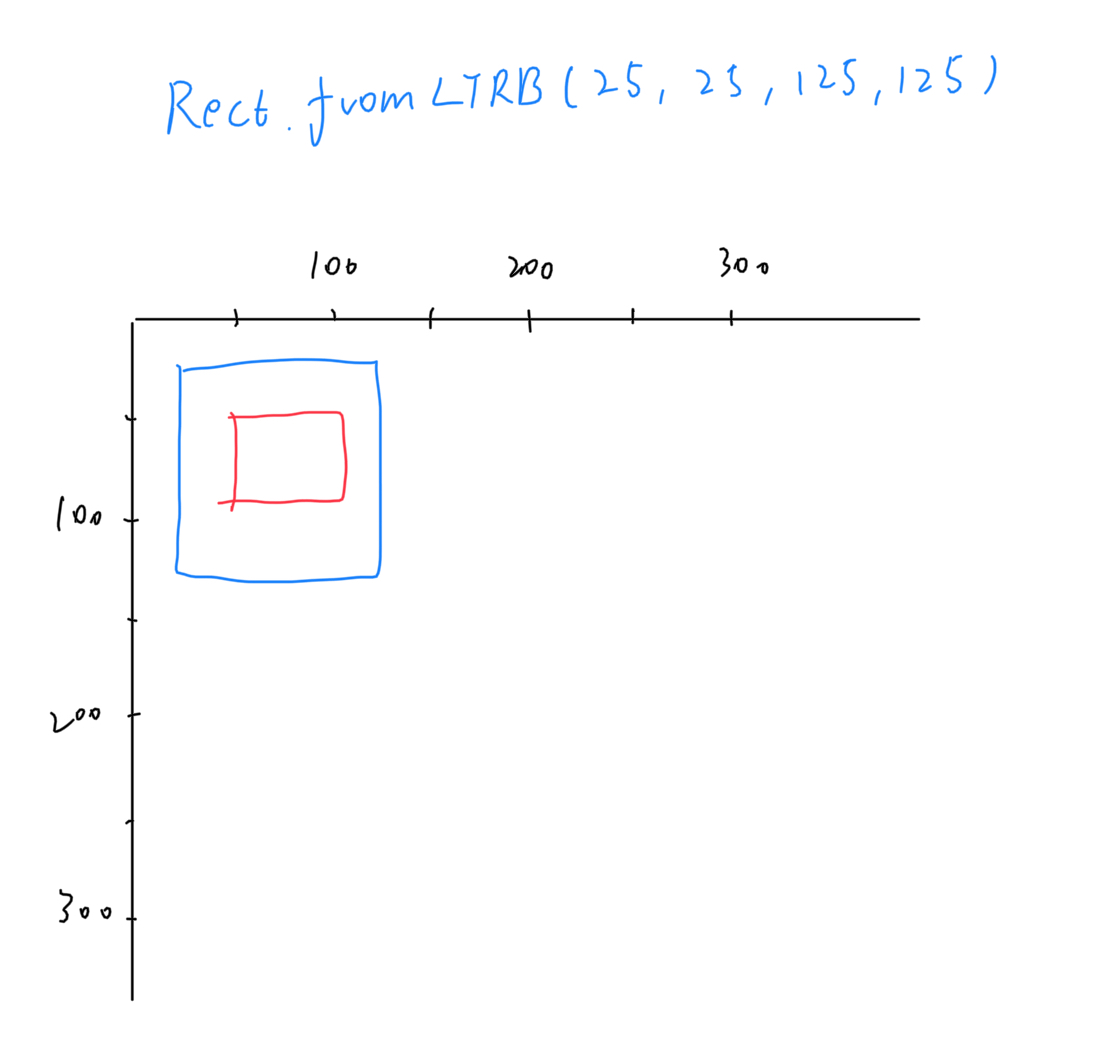 Rect.fromLTRB(25, 25, 125, 125)
100 200 300
100
200
300